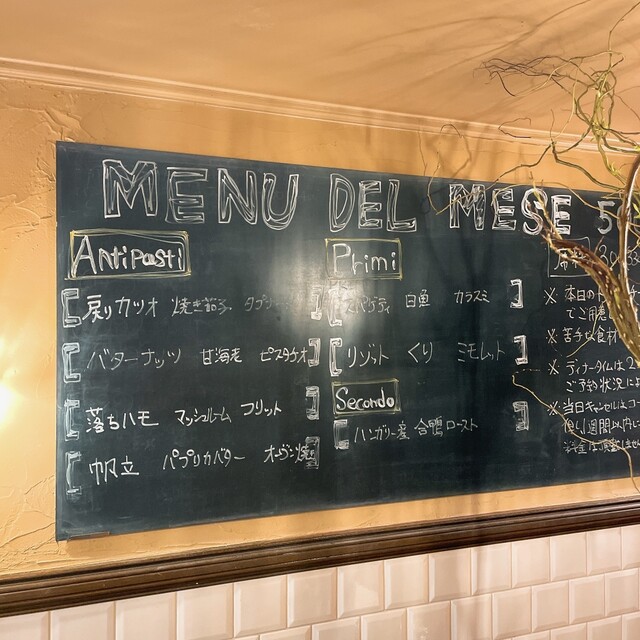 MENU DEL MESE 5
Antipasti
戻りカツオ 焼き茄子
バターナッツ 甘海老 ピスタチオ
落ちハモ マッシュルーム フリット
帆立 パプリカバター オーヴン焼
Primi
スパゲティ 白魚 カラスミ
リゾット くり ミモレット
Secondo
ハンガリー産 合鴨ロースト
※ 本日の
でご用意
※ 苦手な食材
※ ディナータイムは2
ご予約状況によ
※ 当日キャンセルはコー
但し1週間以内